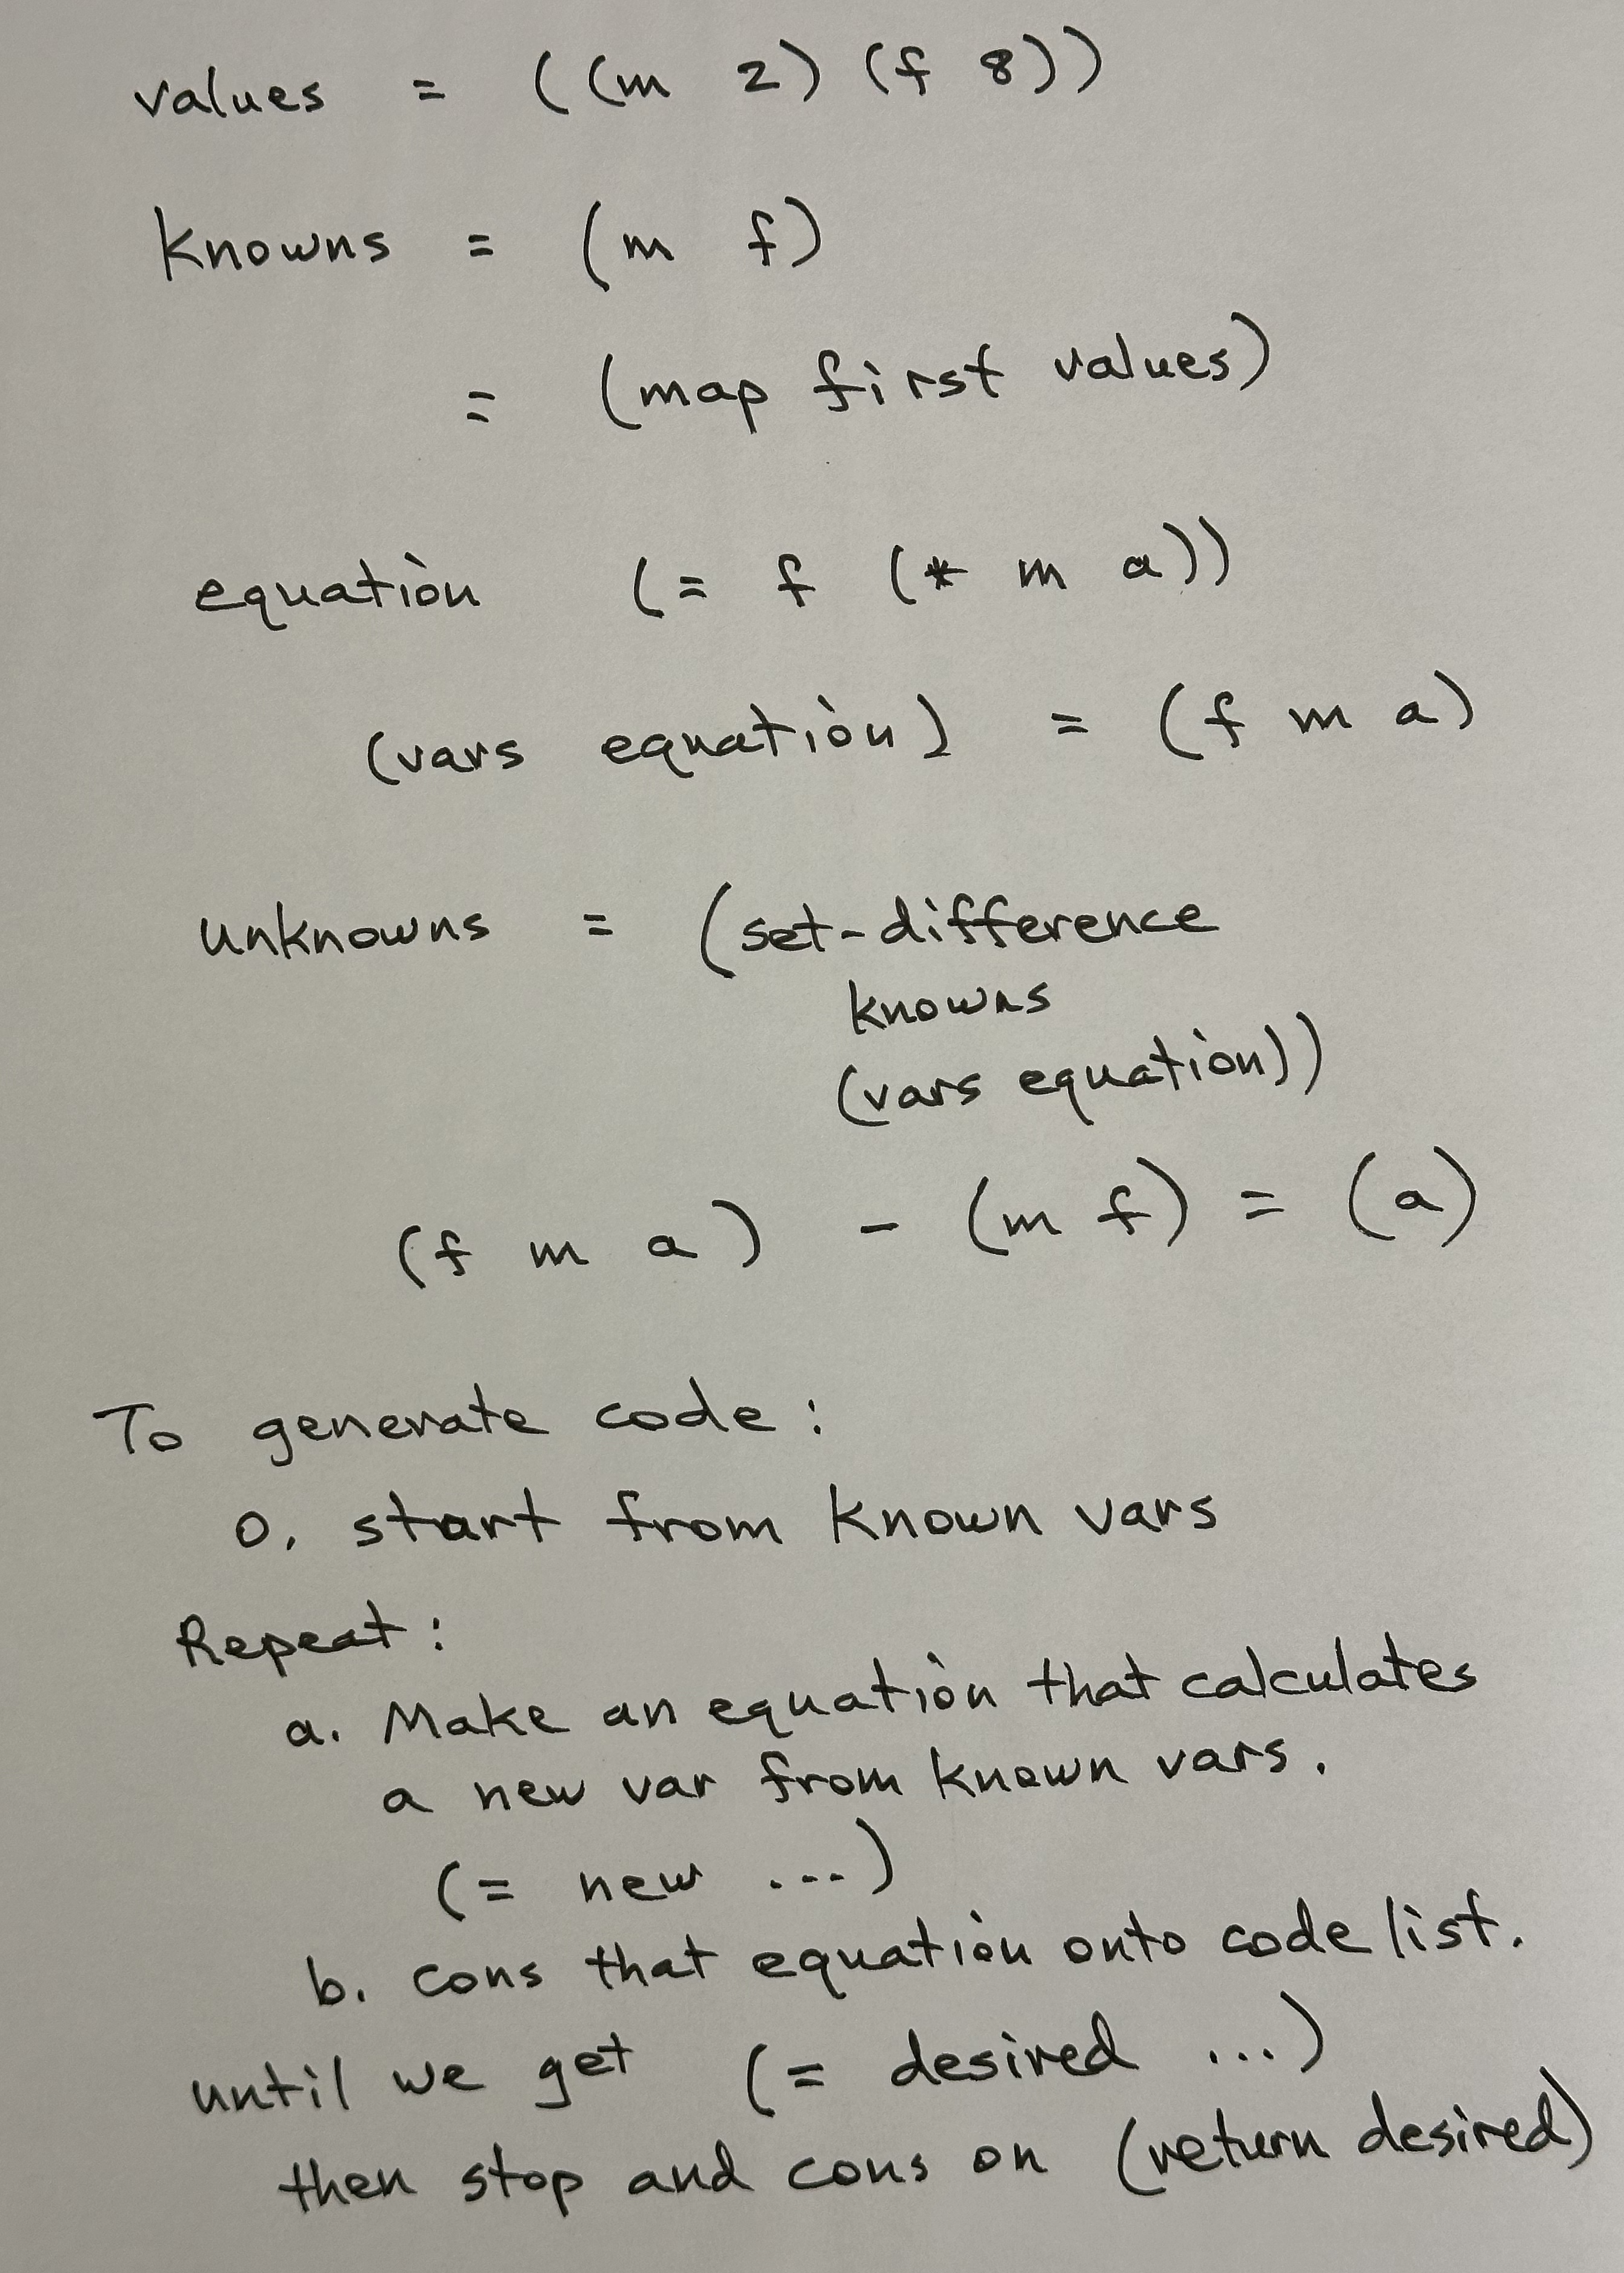 values = ((m 2) (f 8))
Knowns = (m f)
= (map first values)
equation (= f (* m a))
(vars equation) = (f m a)
unknowns = (set-difference
knowns
(vars equation))
(f m a) - (m f) = (a)
To generate code:
0. start from known vars
Repeat:
a. Make an equation that calculates
a new var from known vars.
(= new ...)
b. cons that equation onto code list.
until we get (= desired ...)
then stop and cons on (return desired)